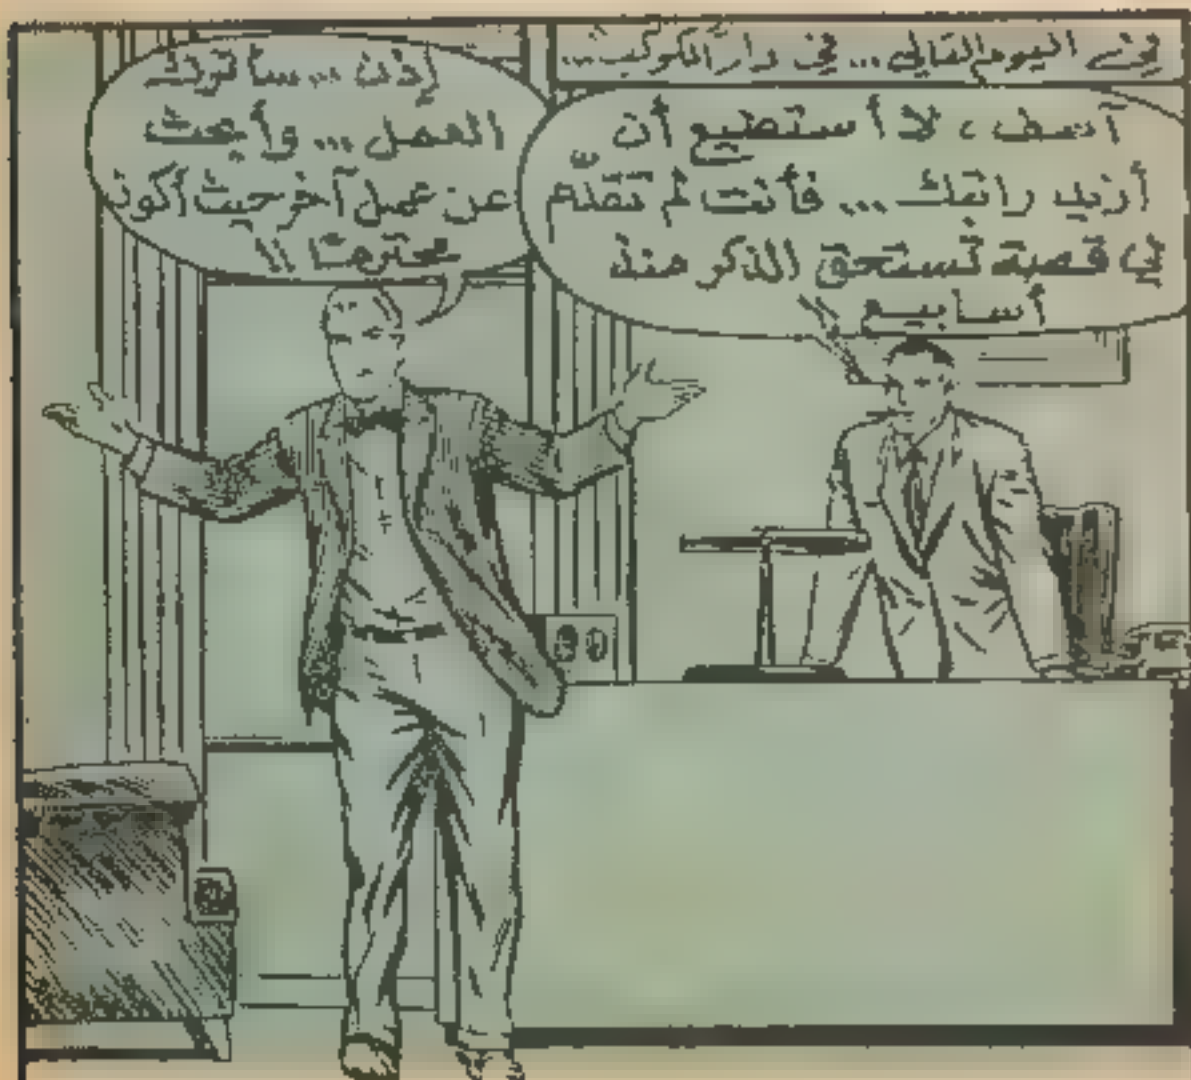 في اليوم التالي... في دار الكوكب...
آسف ، لا أستطيع أن
أزيد راتبك... فأنت لم تقدّم
لي قصة تستحق الذكر منذ
أسابيع
إذن ... سأترك
العمل ... وأبحث
عن عمل آخر حيث أكون
محترمًا !!